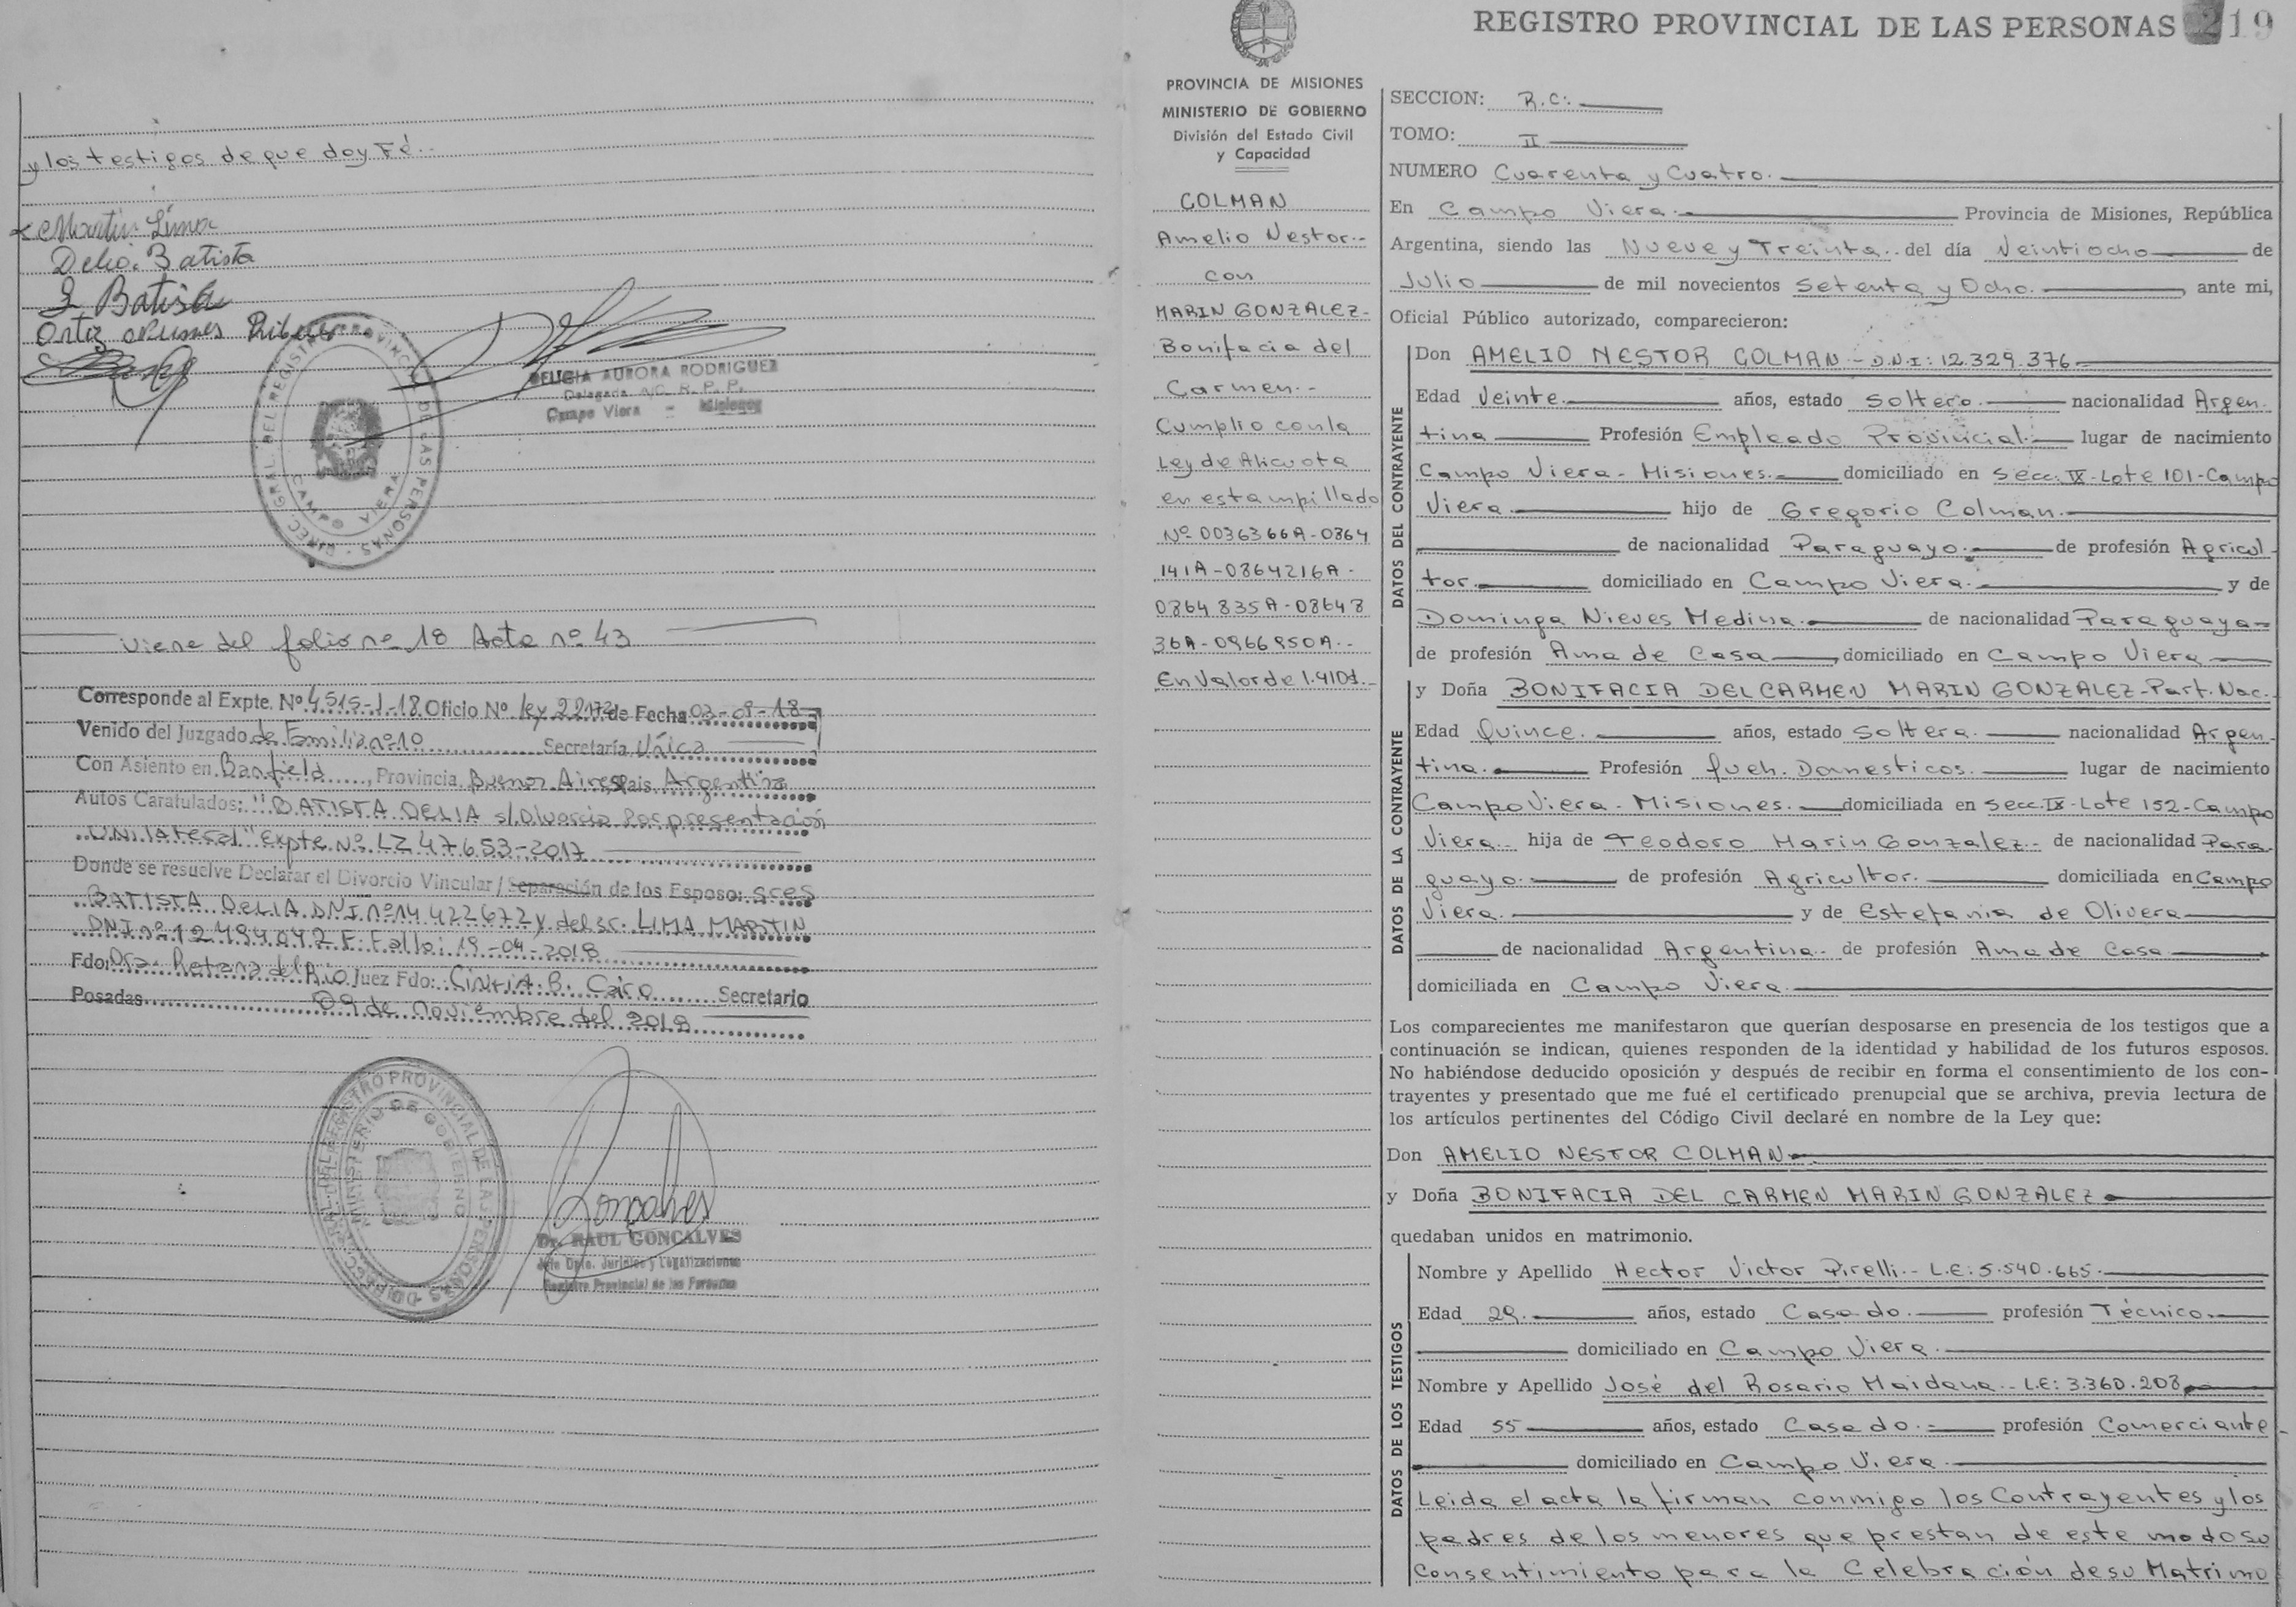 y los testigos de que doy Fé.-
Martin Lima
Delia Batista
Batista
Ortiz
DIREC. GRAL. DEL REGISTRO PROVINCIAL DE LAS PERSONAS
CAMPO VIERA
DELICIA AURORA RODRIGUEZ
Delegada A/C. R. P. P.
Campo Viera - Misiones
Viene del folio nº 18 Acta nº 43
Corresponde al Expte. Nº 4515-J-18 Oficio Nº ley 22172 de Fecha 03-09-18
Venido del Juzgado de Familia nº 10 Secretaría Única
Con Asiento en Banfield, Provincia Buenos Aires País Argentina
Autos Caratulados: "BATISTA DELIA s/Divorcio Por presentación
Unilateral" Expte Nº LZ 47653-2017
Donde se resuelve Declarar el Divorcio Vincular / Separación de los Esposo: sres
BATISTA DELIA DNI nº 14.422672 y del sr. LIMA MARTIN
DNI nº 12494042 F. Fallo: 19-04-2018
Fdo: Dra. del Rio Juez Fdo: Cintia B. Secretario
Posadas 09 de noviembre del 2018
DIRECC. GRAL. DEL REGISTRO PROVINCIAL DE LAS PERSONAS
MINISTERIO DE GOBIERNO
Goncalves
Dr. RAUL GONCALVES
Jefe Dpto. Jurídico y Legalizaciones
Registro Provincial de las Personas
REGISTRO PROVINCIAL DE LAS PERSONAS 219
PROVINCIA DE MISIONES
MINISTERIO DE GOBIERNO
División del Estado Civil
y Capacidad
COLMAN
Amelio Nestor.-
con
MARIN GONZALEZ-
Bonifacia del
Carmen.-
Cumplio con la
Ley de Alicuota
en estampillado
Nº 0036366A-0864
141A-0864216A-
0864835A-08648
36A-0966950A.-
En Valor de 1.410$.-
SECCION: R.C.
TOMO: II
NUMERO Cuarenta y Cuatro.
En Campo Viera. Provincia de Misiones, República
Argentina, siendo las Nueve y Treinta.. del día Veintiocho de
Julio de mil novecientos Setenta y Ocho. , ante mi,
Oficial Público autorizado, comparecieron:
DATOS DEL CONTRAYENTE
Don AMELIO NESTOR COLMAN - D.N.I: 12.329.376
Edad Veinte. años, estado Soltero. nacionalidad Argen-
tina Profesión Empleado Provincial. lugar de nacimiento
Campo Viera - Misiones. domiciliado en Secc. IX-Lote 101-Campo
Viera. hijo de Gregorio Colman.
de nacionalidad Paraguayo. de profesión Agricul-
tor. domiciliado en Campo Viera. y de
Dominga Nieves Medina. de nacionalidad Paraguaya-
de profesión Ama de Casa, domiciliado en Campo Viera
DATOS DE LA CONTRAYENTE
y Doña BONIFACIA DEL CARMEN MARIN GONZALEZ-Part. Nac.-
Edad Quince. años, estado Soltera. nacionalidad Argen-
tina. Profesión Queh. Domesticos. lugar de nacimiento
Campo Viera - Misiones. domiciliada en Secc. IX-Lote 152-Campo
Viera.. hija de Teodoro Marin Gonzalez.- de nacionalidad Para-
guayo. de profesión Agricultor. domiciliada en Campo
Viera. y de Estefania de Olivera
de nacionalidad Argentina.. de profesión Ama de Casa
domiciliada en Campo Viera.
Los comparecientes me manifestaron que querían desposarse en presencia de los testigos que a
continuación se indican, quienes responden de la identidad y habilidad de los futuros esposos.
No habiéndose deducido oposición y después de recibir en forma el consentimiento de los con-
trayentes y presentado que me fué el certificado prenupcial que se archiva, previa lectura de
los artículos pertinentes del Código Civil declaré en nombre de la Ley que:
Don AMELIO NESTOR COLMAN
y Doña BONIFACIA DEL CARMEN MARIN GONZALEZ
quedaban unidos en matrimonio.
DATOS DE LOS TESTIGOS
Nombre y Apellido Hector Victor Pirelli.- L.E: 5.540.665.
Edad 29. años, estado Casado. profesión Técnico.
domiciliado en Campo Viera.
Nombre y Apellido José del Rosario Maidana.- L.E: 3.360.208
Edad 55 años, estado Casado. profesión Comerciante
domiciliado en Campo Viera.
Leida el acta la firman conmigo los Contrayentes y los
padres de los menores que prestan de este modo su
Consentimiento para la Celebración de su Matrimo